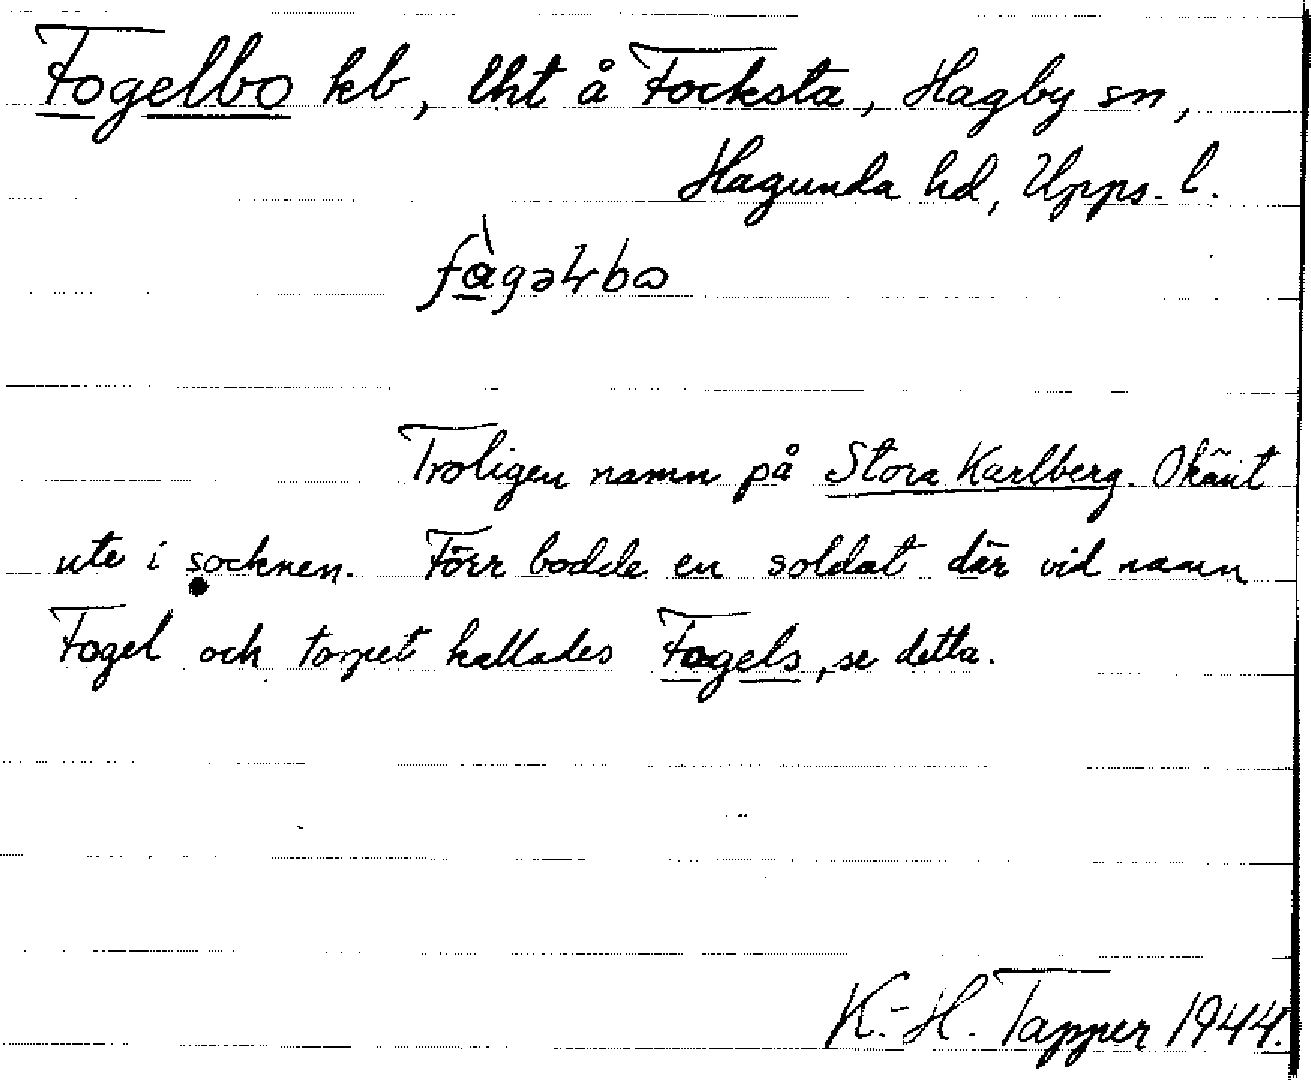 Fogelbo kb, lht å Focksta, Hagby sn,
Hagunda hd, Upps. l.
Troligen namn på Stora Karlberg. Okänt
ute i socknen. Förr bodde en soldat där vid namn
Fogel och torpet kallades Fogels, se detta.
K.-H. Tapper 1944.